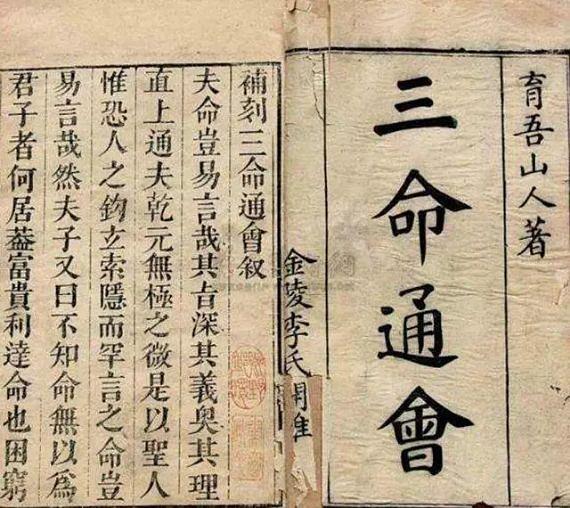 育吾山人著
三命通會
金陵李氏
補刻三命通會叙
夫命豈易言哉其㫖深其義奥其理
直上通夫乾元無極之微是以聖人
惟恐人之鈎玄索隱而罕言之命豈
易言哉然夫子又曰不知命無以爲
君子者何居葢富貴利達命也困窮